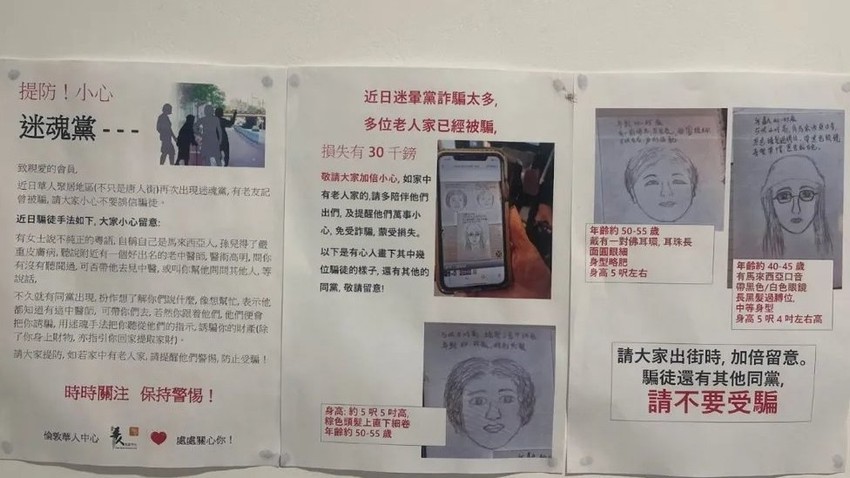 提防！小心
迷魂黨 ---
致親愛的會員,
近日華人聚居地區(不只是唐人街)再次出現迷魂黨, 有老友記
曾被騙, 請大家小心不要誤信騙徒。
近日騙徒手法如下, 大家小心留意:
有女士說不純正的粵語, 自稱自己是馬來西亞人, 孫兒得了嚴
重皮膚病, 聽說附近有一個好出名的老中醫師, 醫術高明, 問你
有沒有聽聞過, 可否帶他去見中醫, 或叫你幫他問問其他人, 等
說話,
不久就有同黨出現, 扮作想了解你們說什麼, 像想幫忙, 表示他
都知道有這中醫師, 可帶你們去, 若然你跟着他們, 他們便會
把你誘騙, 用迷魂手法把你聽從他們的指示, 誘騙你的財產(除
了你身上財物, 亦指引你回家提取家財)。
請大家提防, 如若家中有老人家, 請提醒他們警惕, 防止受騙！
時時關注 保持警惕！
倫敦華人中心
處處關心你！
近日迷暈黨詐騙太多,
多位老人家已經被騙,
損失有 30 千鎊
敬請大家加倍小心, 如家中
有老人家的, 請多陪伴他們
出們, 及提醒他們萬事小
心, 免受詐騙, 蒙受損失。
以下是有心人畫下其中幾
位騙徒的樣子, 還有其他的
同黨, 敬請留意!
身高: 約 5 呎 5 吋高,
棕色頭髮上直下細卷
年齡約 50-55 歲
年齡約 50-55 歲
戴有一對佛耳環, 耳珠長
面圓眼細
身型略肥
身高 5 呎左右
年齡約 40-45 歲
有馬來西亞口音
帶黑色/白色眼鏡
長黑髮過膊位
中等身型
身高 5 呎 4 吋左右高
請大家出街時, 加倍留意。
騙徒還有其他同黨,
請不要受騙